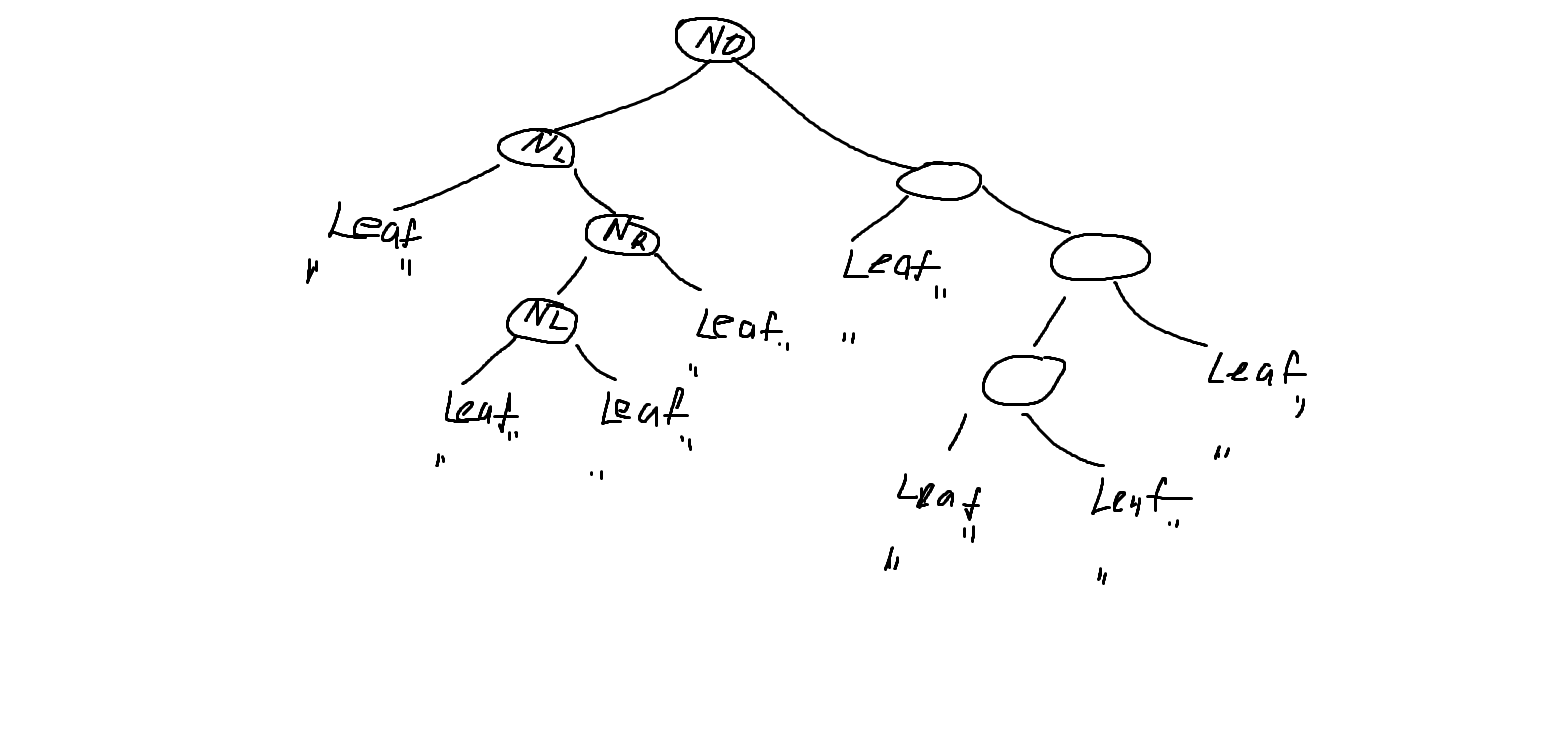 NO
NL
Leaf
NR
Leaf
NL
Leaf
Leaf
Leaf
Leaf
Leaf
Leaf